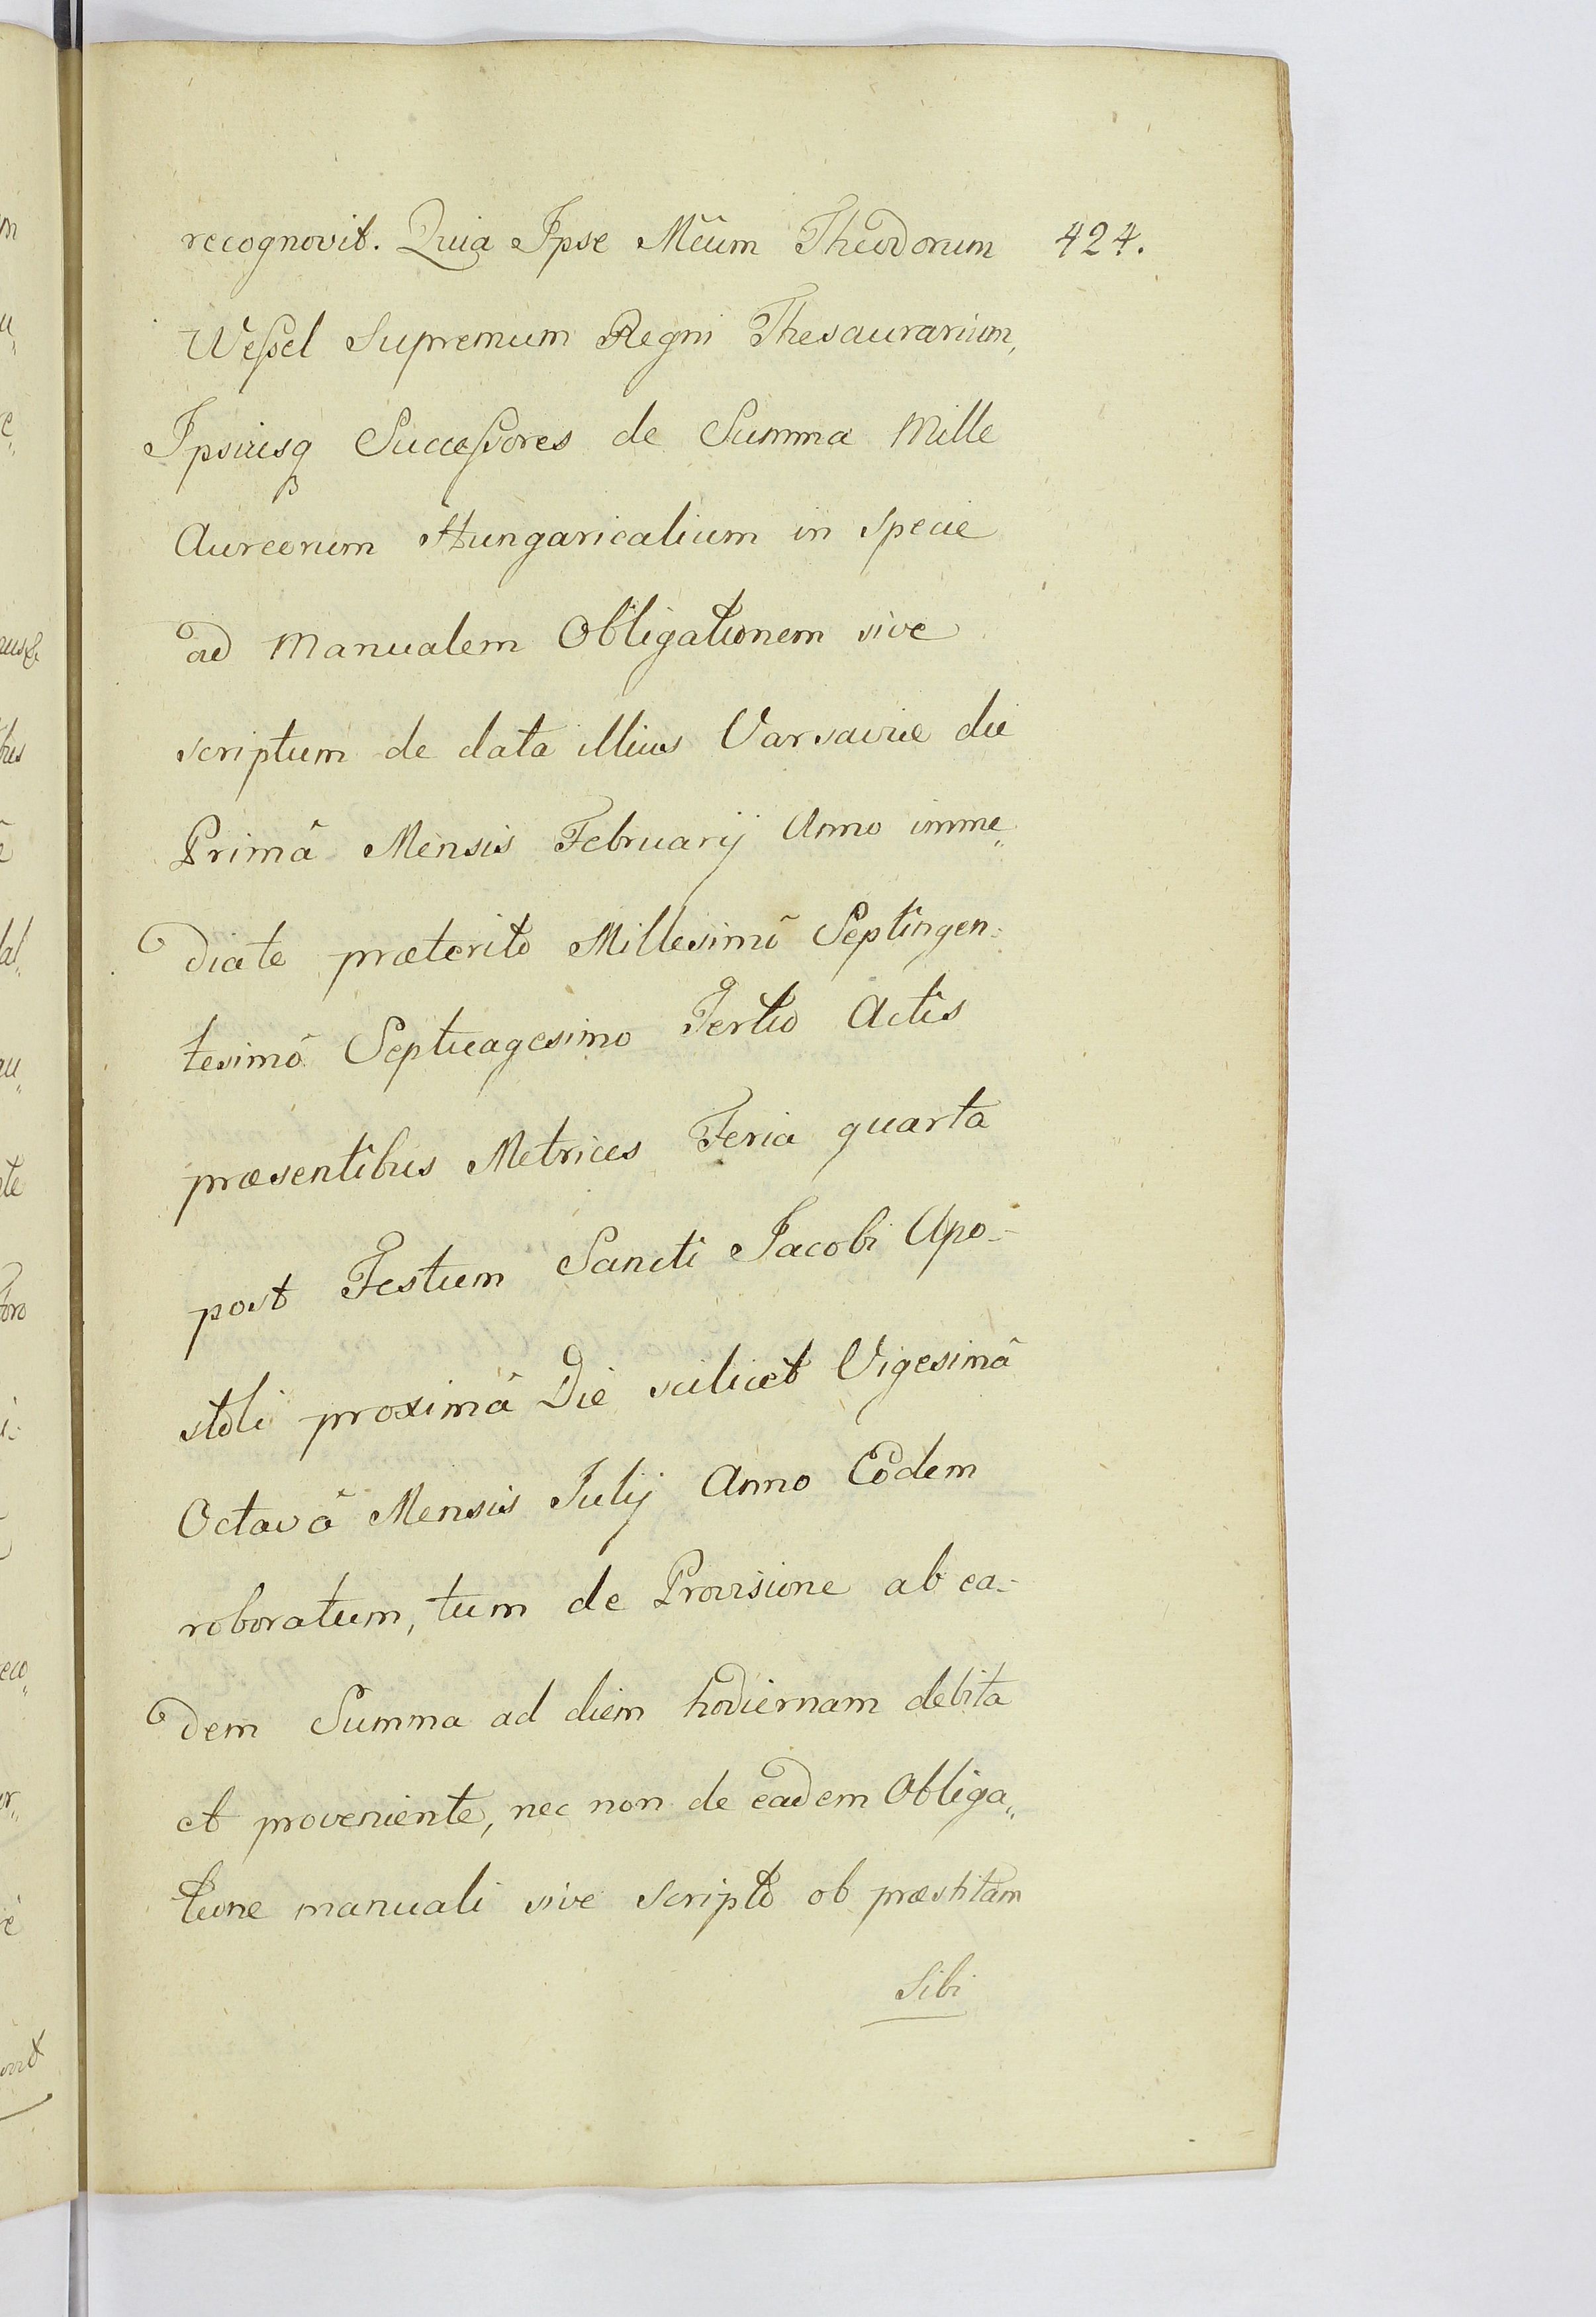 recognovit. Quia Ipse Mcûm Theodorum 424.
Weſsel Supremum Regni Thesaurarium,
Ipsiusq Succeſsores de Summa Mille
Aureorum Hungaricalium in specie
ad Manualem Obligationem sive
scriptum de data illius Varsaviæ die
Primâ Mensis Februarij Anno imme„
diate præterito Millesimô Septingen=
tesimô Septuagesimo Tertio Actis
præsentibus Metrices Feria quarta
post Festum Sancti Jacobi Apo=
stoli proximâ Die scilicet Vigesimâ
Octavâ Mensis Julij Anno Eodem
roboratum, tum de Provisione ab ea=
dem Summa ad diem hodiernam debita
et proveniente, nec non de eadem Obliga„
tione manuali sive scripto ob præstitam
Sibi